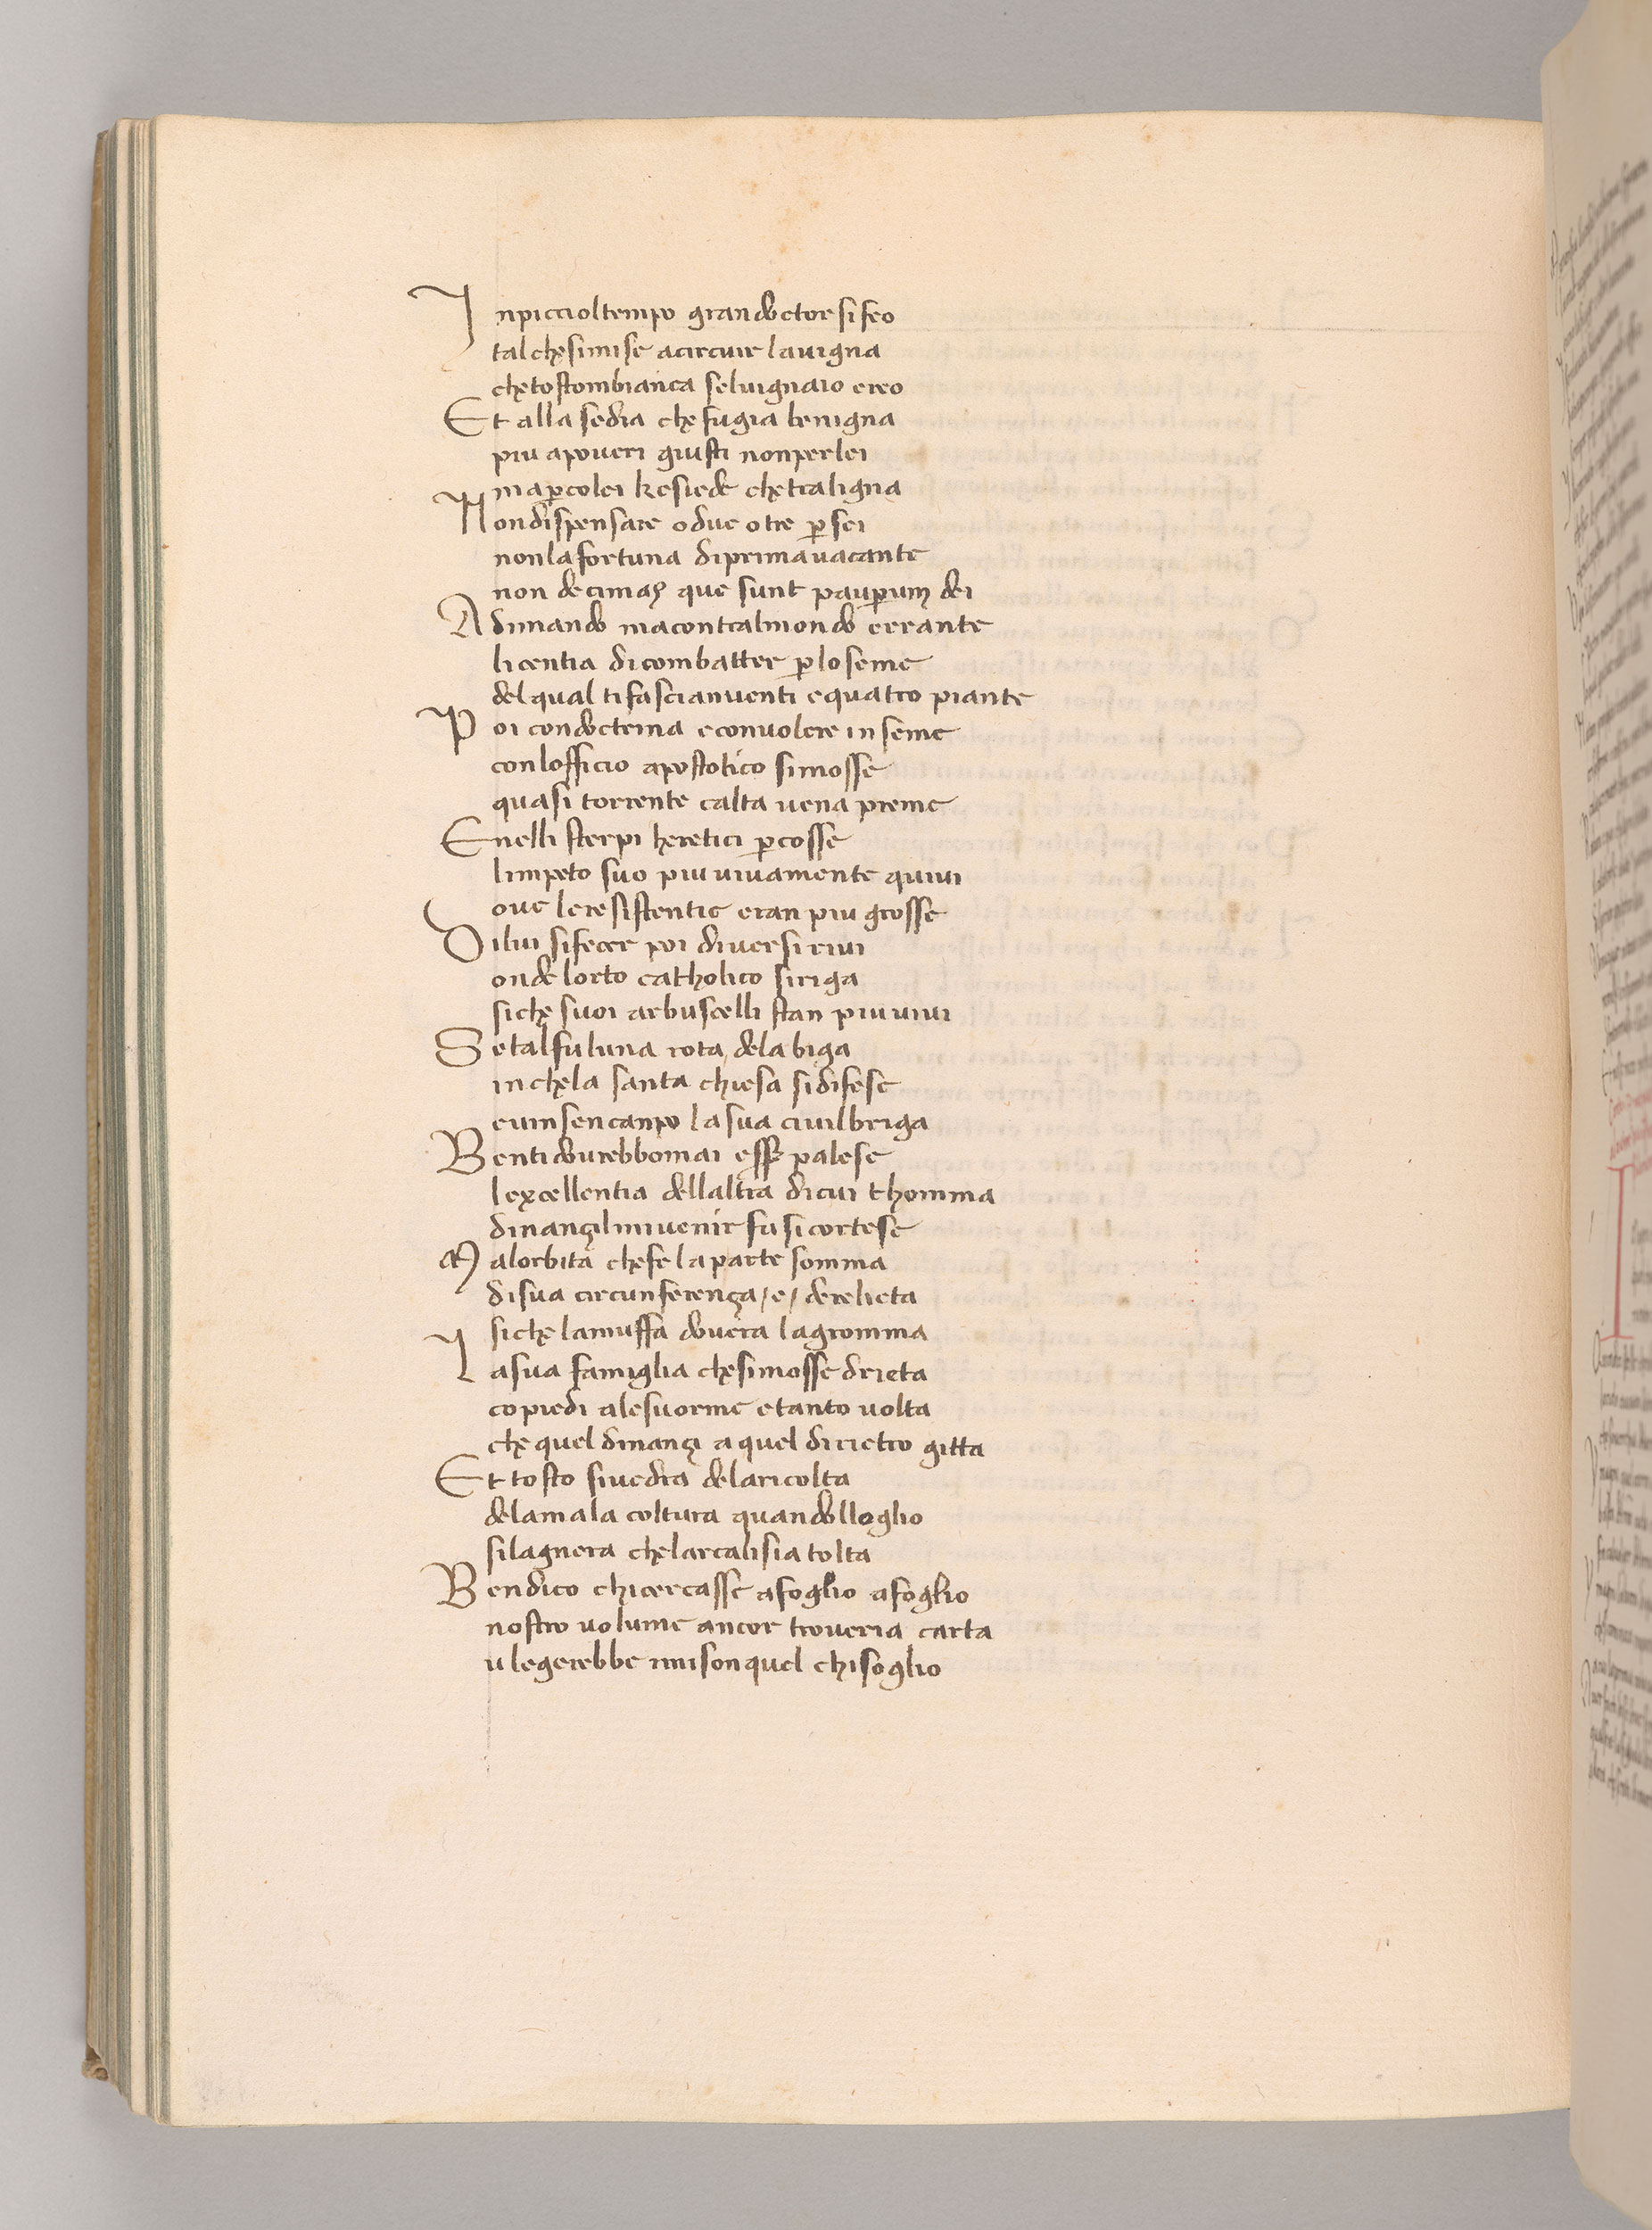 Inpiccioltempo grandoctor sifeo
talchesimise acircuir lauigna
chetostombianca seluignaio ereo
Et alla sedia che fugia benigna
piu apoueri giusti nonperlei
maꝑcolei kesiede chetraligna
Nondispensare odue otre ꝑsei
nonlafortuna diprimauacante
non decimas que sunt pauꝑum dei
Adimando macontralmondo errante
licentia dicombatter ꝑloseme
delqual tifascianuenti equatro piante
Poi condoctrina econuolere inseme
conlofficio apostolico simosse
quasi torrente calta uena preme
Enelli sterpi heretici ꝑcosse
limpeto suo piu uiuamente quiui
oue leresistentie eran piu grosse
Dilui sifecer poi diuersi riui
onde lorto catholico siriga
siche suoi arbuscelli stan piu uiui
Setalfuluna rota dela biga
inchela santa chiesa sidifese
euinsencanpo lasua ciuilbriga
Bentidourebbomai essr palese
lexcellentia dellaltra dicui thomma
dinançilmiuenir fusicortese
Malorbita chefe laparte somma
disua circunferença /e/ derelicta
siche lamuffa douera lagromma
Lasua famiglia chesimosse dricta
copiedi alesuorme etanto uolta
che quel dinançi aquel dirietro gitta
Et tosto siuedra delaricolta
delamala coltura quandolloglio
silagnera chelarcalisia tolta
Bendico chicercasse afoglio afoglio
nostro uolume ancor troueria carta
ulegerebbe mison quel chisoglio